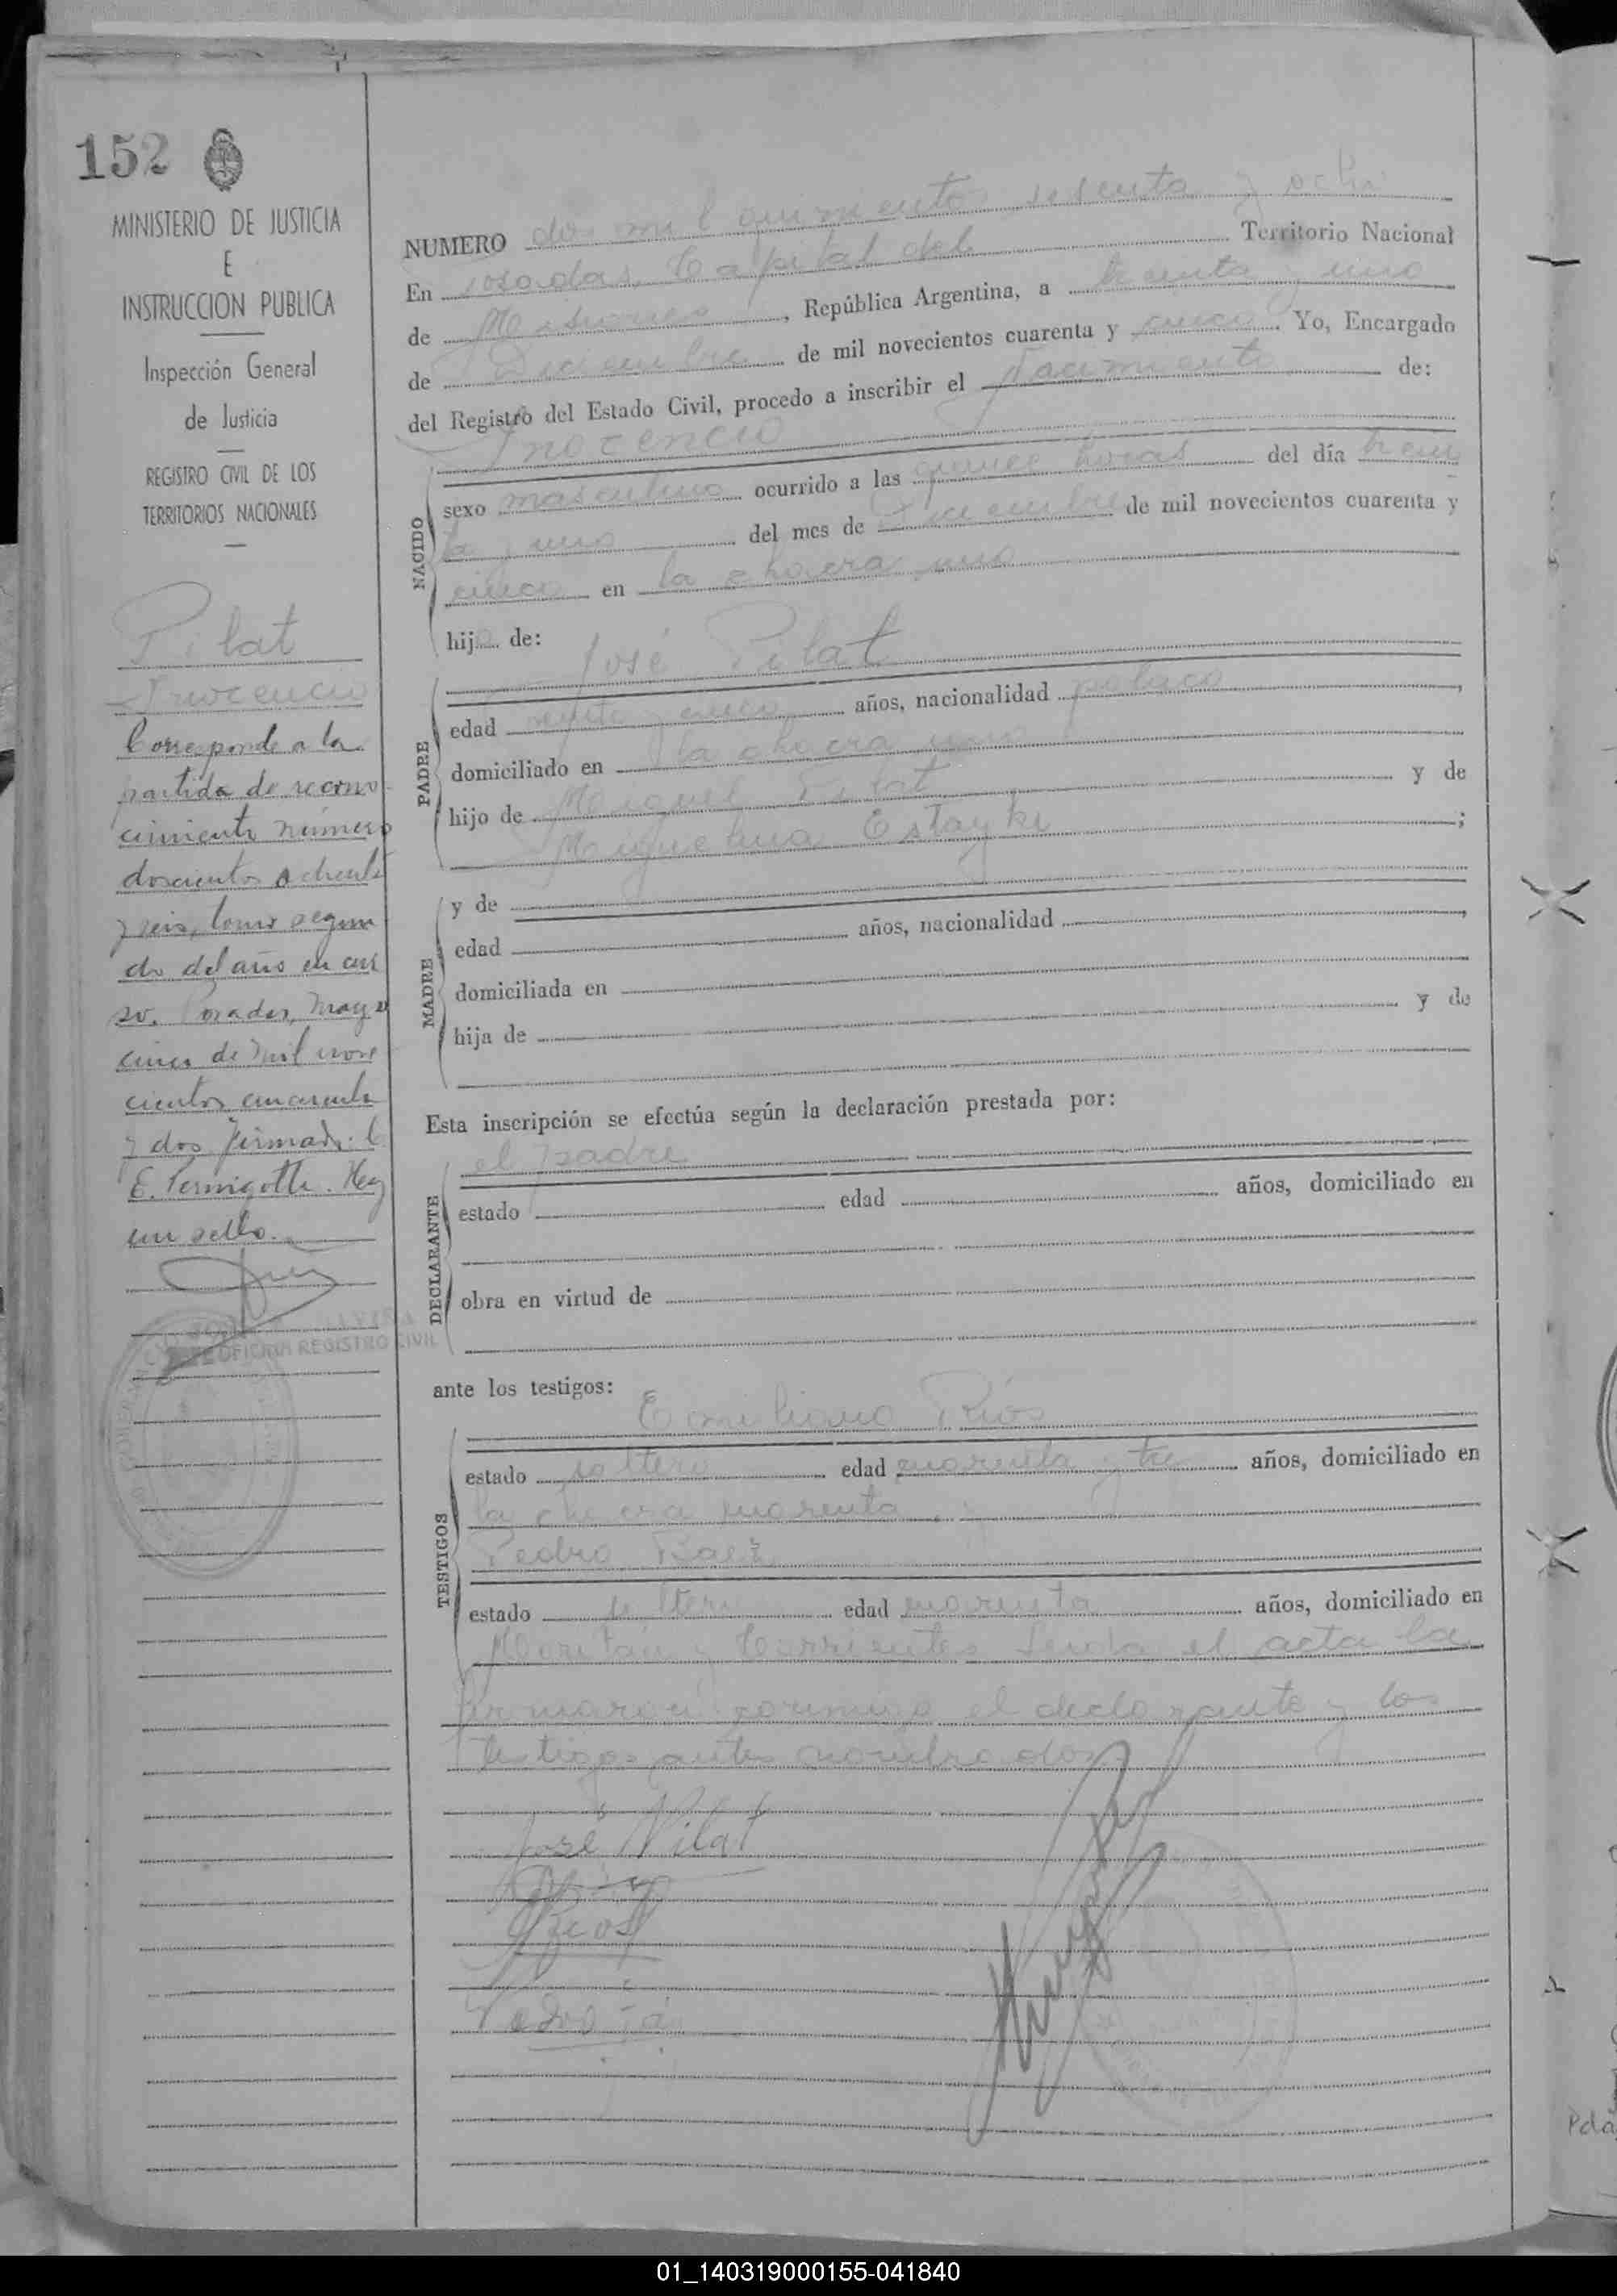 152
MINISTERIO DE JUSTICIA
E
INSTRUCCION PUBLICA
Inspección General
de Justicia
REGISTRO CIVIL DE LOS
TERRITORIOS NACIONALES
Pilat
Inocencio
Corresponde a la
partida de recono
cimiento número
doscientos ochenta
y seis, tomo segun
do del año en cur
so. Posadas, Mayo
cinco de mil nove
cientos cuarenta
y dos firmado: C
E. Pernigotti. Hay
un sello.
OFICINA REGISTRO CIVIL
NUMERO dos mil quinientos sesenta y ocho
En Posadas, Capital del Territorio Nacional
de Misiones, República Argentina, a treinta y uno
de Diciembre de mil novecientos cuarenta y cinco. Yo, Encargado
del Registro del Estado Civil, procedo a inscribir el nacimiento de:
NACIDO
Inocencio
sexo masculino ocurrido a las quince horas del día trein
ta y uno del mes de Diciembre de mil novecientos cuarenta y
cinco en la chacra uno
hijo de:
PADRE
José Pilat
edad y cinco años, nacionalidad polaco,
domiciliado en la chacra uno
hijo de Miguel Pilat y de
Miguelina Estayki;
MADRE
y de
edad años, nacionalidad
domiciliada en
hija de y de
Esta inscripción se efectúa según la declaración prestada por:
DECLARANTE
el padre
estado edad años, domiciliado en
obra en virtud de
ante los testigos:
TESTIGOS
Emiliano Ríos
estado soltero edad cuarenta y tres años, domiciliado en
la chacra cuarenta
Pedro Baez
estado soltero edad cuarenta años, domiciliado en
y Corrientes Leida el acta la
firmaron conmigo el declarante y los
testigos antes nombrados
José Pilat
Rios
Pda
01_140319000155-041840